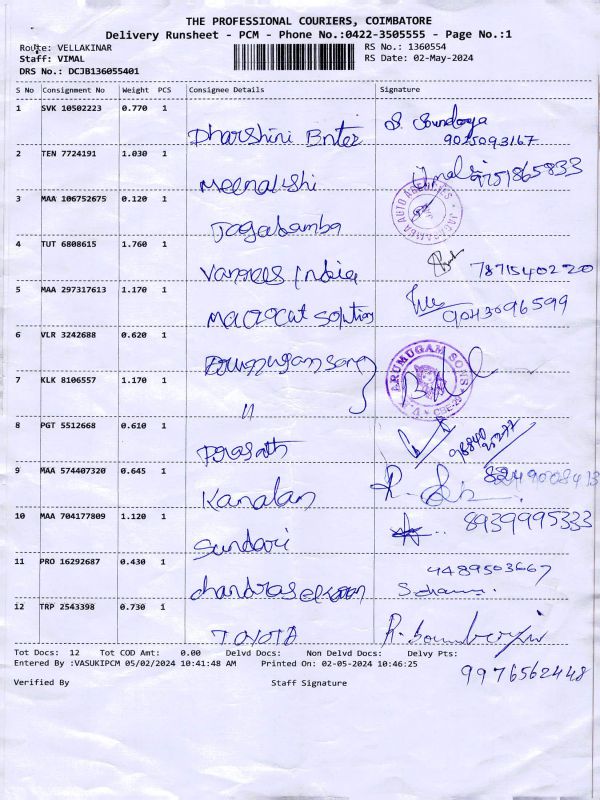 THE PROFESSIONAL COURIERS, COIMBATORE
Delivery Runsheet - PCM - Phone No.:0422-3505555 - Page No.:1
Route: VELLAKINAR RS No.: 1360554
Staff: VIMAL RS Date: 02-May-2024
DRS No.: DCJB136055401
S No Consignment No Weight PCS Consignee Details Signature
1 SVK 10502223 0.770 1 Dharshini Enter S. Soundarya
9025093167
2 TEN 7724191 1.030 1 Meenakshi 9751865833
3 MAA 106752675 0.120 1 Jagabamba JAGADAMBA AUTO AGENCIES
4 TUT 6808615 1.760 1 India 7871540220
5 MAA 297317613 1.170 1 Macrocut Solution 9043096599
6 VLR 3242688 0.620 1 Arumugam Sons ARUMUGAM SONS
7 KLK 8106557 1.170 1 "
8 PGT 5512668 0.610 1 Prasath
9 MAA 574407320 0.645 1 Kanalan
10 MAA 704177809 1.120 1 Sundari 8939995333
11 PRO 16292687 0.430 1 Chandrasekaran 4489503667
12 TRP 2543398 0.730 1 TOYOTA
Tot Docs: 12 Tot COD Amt: 0.00 Delvd Docs: Non Delvd Docs: Delvy Pts:
Entered By :VASUKIPCM 05/02/2024 10:41:48 AM Printed On: 02-05-2024 10:46:25
9976562448
Verified By Staff Signature